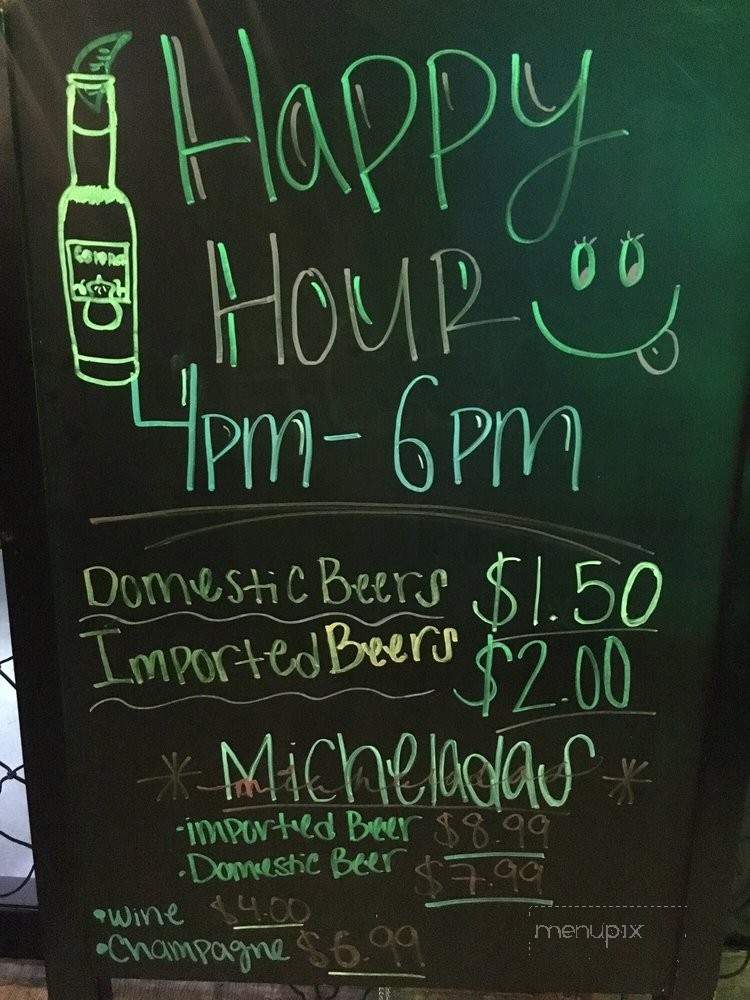 Happy
Corona
Hour
4pm - 6pm
Domestic Beers $1.50
Imported Beers $2.00
* Micheladas *
·imported Beer $8.99
·Domestic Beer $7.99
•wine $4.00
•Champagne $6.99
menupix